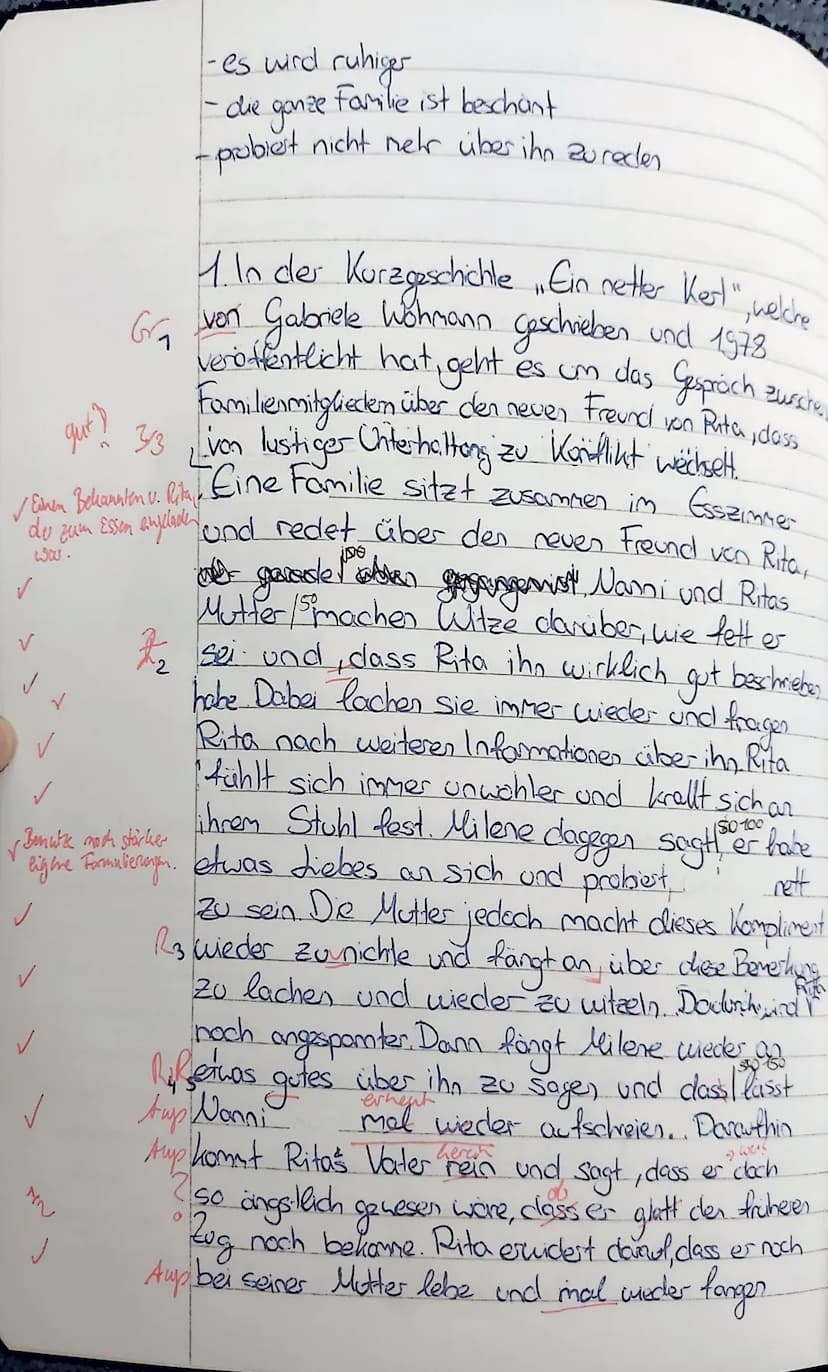 - es wird ruhiger
- die ganze Familie ist beschämt
- probiert nicht mehr über ihn zu reden
1. In der Kurzgeschichte „Ein netter Kerl", welche
Gr1 von Gabriele Wohmann geschrieben und 1978
veröffentlicht hat, geht es um das Gespräch zwische
Familienmitgliedern über den neuen Freund von Rita, dass
gut! 3/3 von lustiger Unterhaltung zu Konflikt wechselt.
Eine Familie sitzt zusammen im Esszimmer
✓ Einen Bekannten v. Rita, der zum Essen eingeladen war.
und redet über den neuen Freund von Rita,
gerade Nanni und Ritas
Mutter |50 machen Witze darüber, wie fett er
R2 sei und, dass Rita ihn wirklich gut beschrieben
habe. Dabei lachen sie immer wieder und fragen
Rita nach weiteren Informationen über ihn. Rita
fühlt sich immer unwohler und krallt sich an
ihrem Stuhl fest. Milene dagegen sagt, er habe
✓ Benutze noch stärker eigene Formulierungen.
etwas Liebes an sich und probiert, nett
zu sein. Die Mutter jedoch macht dieses Kompliment
R3 wieder zu nichte und fängt an, über diese Bemerkung
zu lachen und wieder zu witzeln. Dadurch wird Rita
noch angespannter. Dann fängt Milene wieder an
R4 R5 etwas gutes über ihn zu sagen und dass lässt
erneut
Ausp Nanni mal wieder aufschreien. Daraufhin
herein
Ausp kommt Rita's Vater rein und sagt, dass er doch
ob
? so ängstlich gewesen wäre, dass er glatt den früheren
Zug noch bekomme. Rita erwidert darauf, dass er noch
Ausp bei seiner Mutter lebe und mal wieder fangen